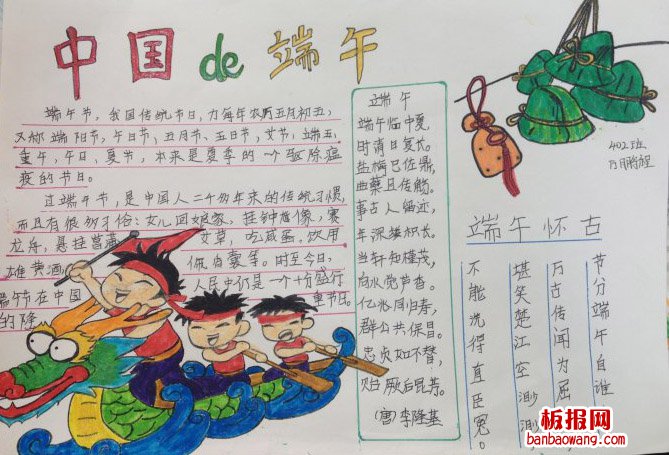 中国de端午
端午节，我国传统节日，力每年农历五月初五，
又称端阳节，午日节，五月节、五日节，艾节，端五，
重午，午日，夏节，本来是夏季的一个驱除瘟
疫的节日。
过端午节，是中国人二千多年来的传统习惯，
而且有很多习俗：女儿回娘家，挂钟馗像，赛
龙舟，悬挂菖蒲 艾草，吃咸蛋，饮用
雄黄酒， 佩香囊等。时至今日，
端午节在中国 人民中仍是一个十分盛行
的隆 重节日。
端午
端午临中夏，
时清日复长。
盐梅已佐鼎，
曲糵且传觞。
事古人留迹，
年深缕积长。
当轩知槿茂，
向水觉芦香。
亿兆同归寿，
群公共保昌。
忠贞如不替，
贻厥后昆芳。
(唐)李隆基
402班
端午怀古
节分端午自谁
万古传闻为屈
堪笑楚江空渺渺
不能洗得直臣冤。
板报网
banbaowang.com